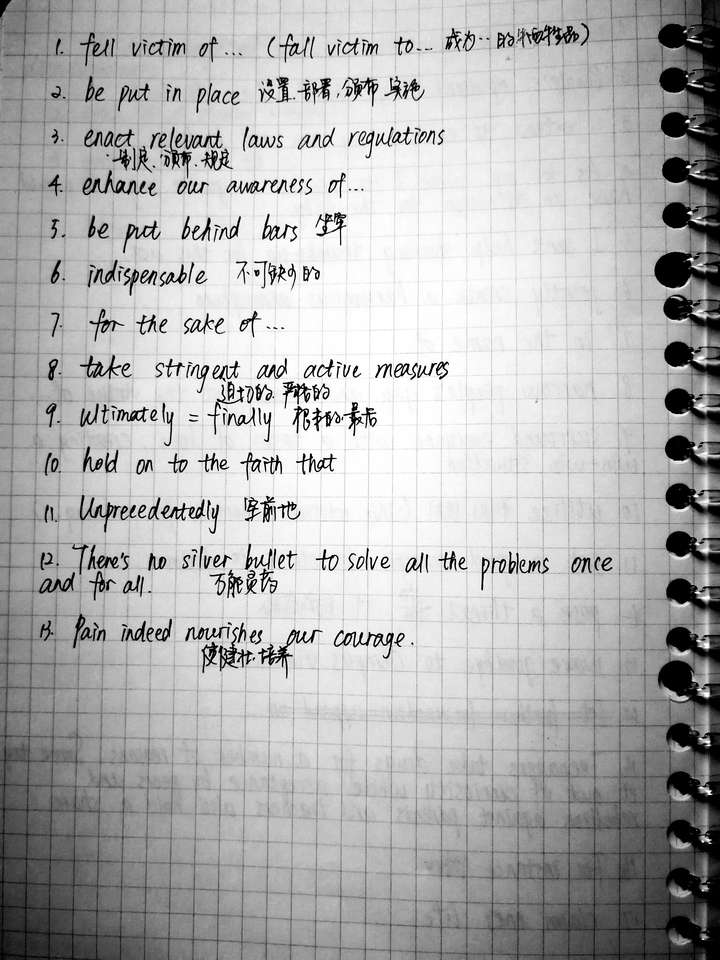 1. fell victim of... (fall victim to... 成为...的牺牲品)
2. be put in place 设置.部署.颁布.实施
3. enact relevant laws and regulations
制定.颁布.规定
4. enhance our awareness of...
5. be put behind bars 坐牢
6. indispensable 不可缺少的
7. for the sake of...
8. take stringent and active measures
迫切的.严格的
9. ultimately = finally 根本的.最后
10. hold on to the faith that
11. Unprecedentedly 空前地
12. There's no silver bullet to solve all the problems once
and for all. 万能灵药
13. Pain indeed nourishes our courage.
使健壮.培养